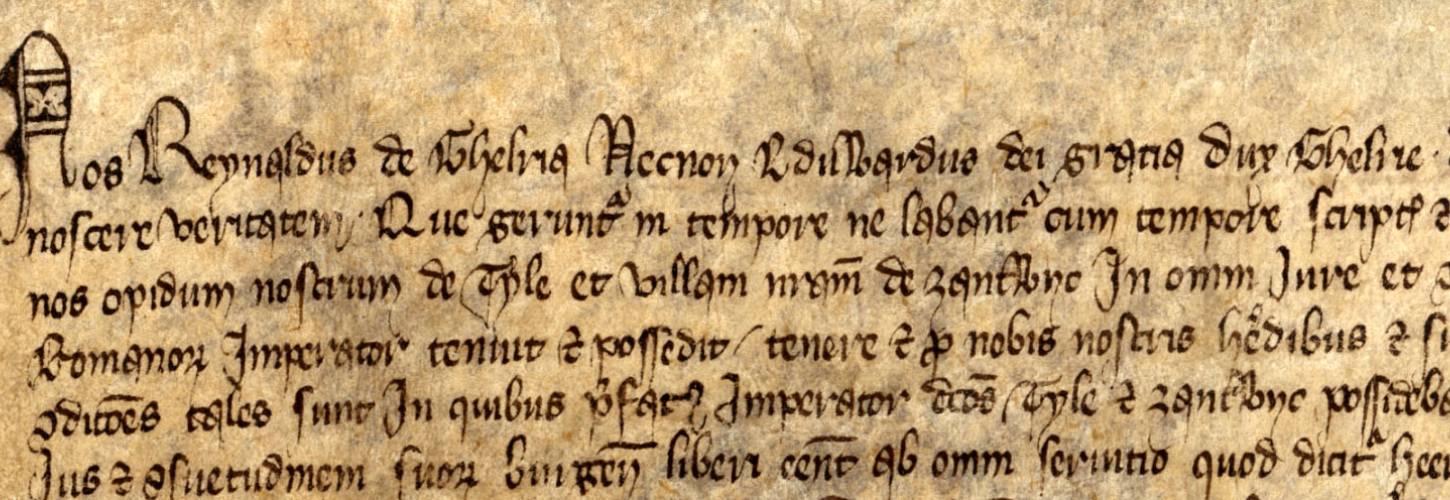 Nos Reynaldus de Ghelria Necnon Eduwardus dei gratia dux Ghelrie
noscere veritatem. Que gerunt᷑ in tempore ne labant᷑ cum tempore script
nos opidum nostrum de Tyle et villam nram̄ de zantwyc In omni Jure et
Romanoꝝ Imperator tenuit ⁊ possedit / tenere ⁊ ꝓ nobis nostris hedibus ⁊
ꝯditōes tales sunt In quibus p̄fatꝰ Imperator dcōs Tyle ⁊ zantwyc
Jus ⁊ ꝯsuetudinem suoꝝ burgen̄ liberi cen̄t ab omni seruitio quod dicit᷑